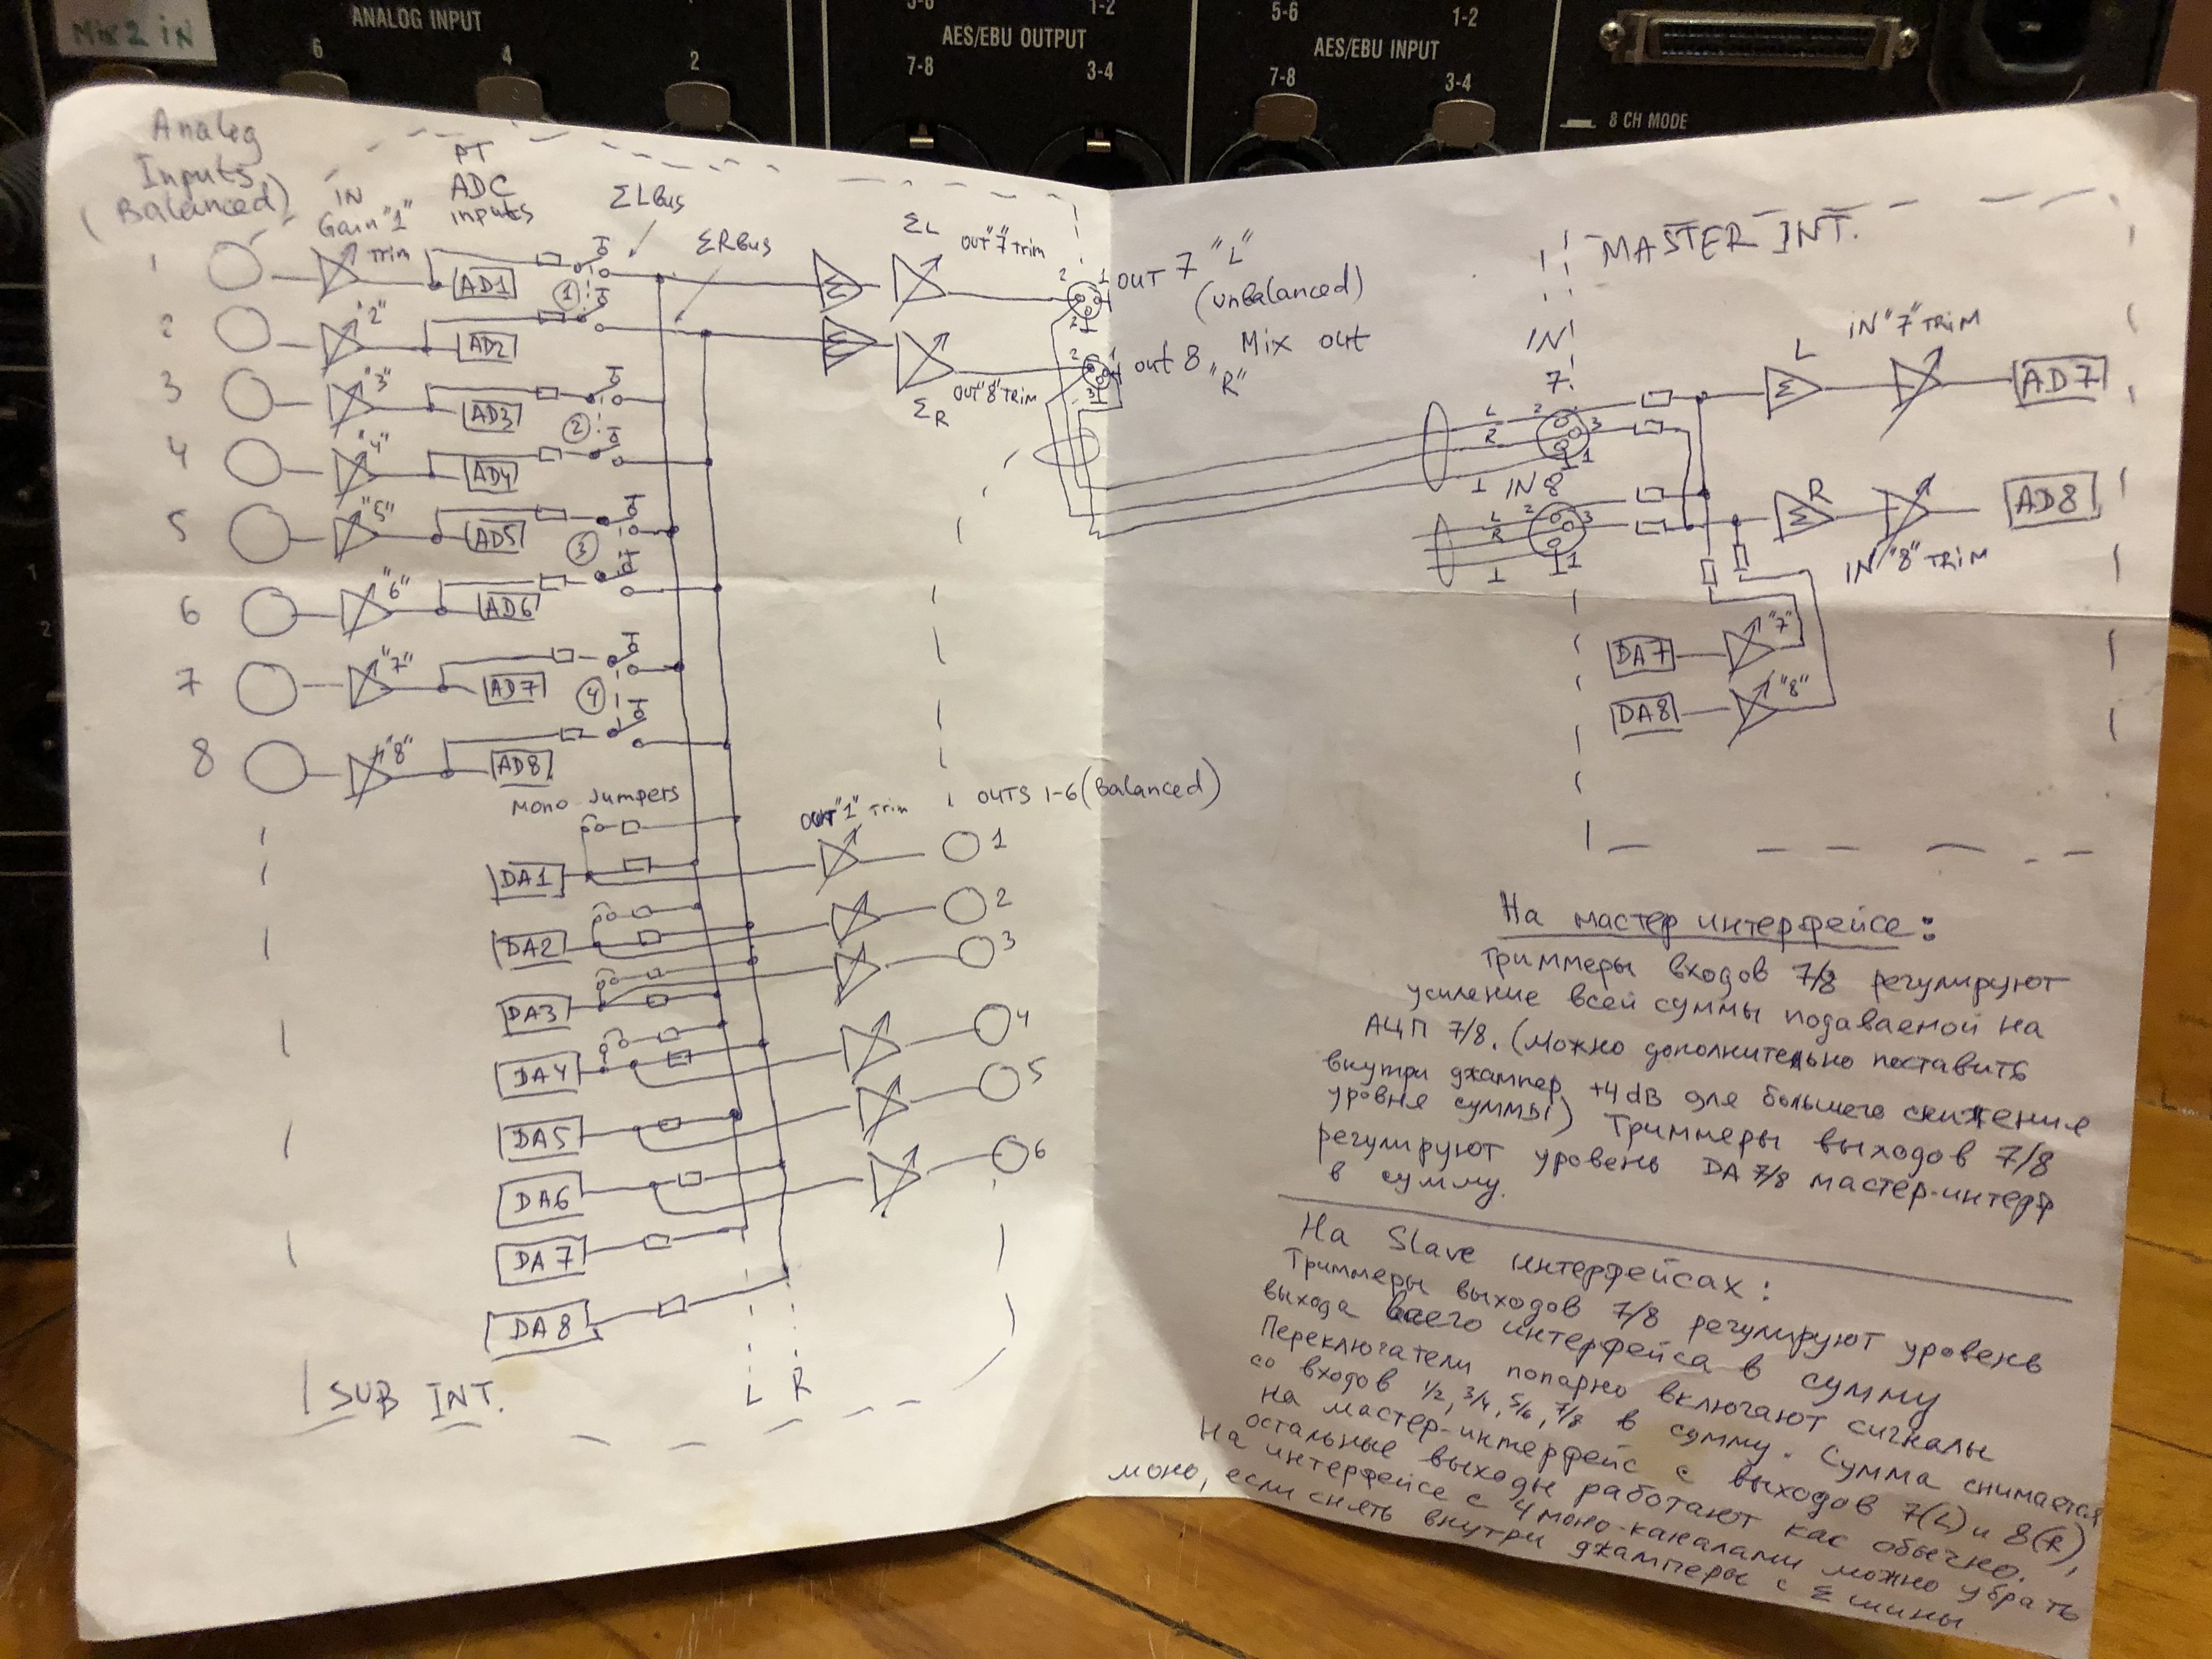 Mix 2 iN
ANALOG INPUT
6
4
2
5-6
1-2
AES/EBU OUTPUT
7-8
3-4
5-6
1-2
AES/EBU INPUT
7-8
3-4
8 CH MODE
1
2
Analog
Inputs
(Balanced)
IN
Gain "1"
Trim
PT
ADC
inputs
ΣL Bus
ΣR Bus
ΣL
OUT "7" Trim
ΣR
OUT "8" TRIM
2
1
OUT 7 "L"
(unbalanced)
Mix out
out 8 "R"
1
AD1
1
2
"2"
AD2
3
"3"
AD3
2
4
"4"
AD4
5
"5"
AD5
3
6
"6"
AD6
7
"7"
AD7
4
8
"8"
AD8
Mono Jumpers
OUT "1" Trim
OUTS 1-6 (Balanced)
DA1
1
DA2
2
DA3
3
DA4
4
DA5
5
DA6
6
DA7
DA8
L R
SUB INT.
MASTER INT.
IN
7
L
R
2
3
1
IN 8
L
R
2
3
1
L
IN "7" TRIM
AD7
R
IN "8" TRIM
AD8
DA7
"7"
DA8
"8"
На мастер интерфейсе:
Триммеры входов 7/8 регулируют
усиление всей суммы подаваемой на
АЦП 7/8. (Можно дополнительно поставить
внутри джампер +4dB для большего снижения
уровня суммы) Триммеры выходов 7/8
регулируют уровень DA 7/8 мастер-интерф
в сумму.
На Slave интерфейсах:
Триммеры выходов 7/8 регулируют уровень
выхода всего интерфейса в сумму
Переключатели попарно включают сигналы
со входов 1/2, 3/4, 5/6, 7/8 в сумму. Сумма снимается
на мастер-интерфейс с выходов 7(L) и 8(R),
остальные выходы работают как обычно.
На интерфейсе с 4 моно-каналами можно убрать
моно, если снять внутри джамперы с Σ шины